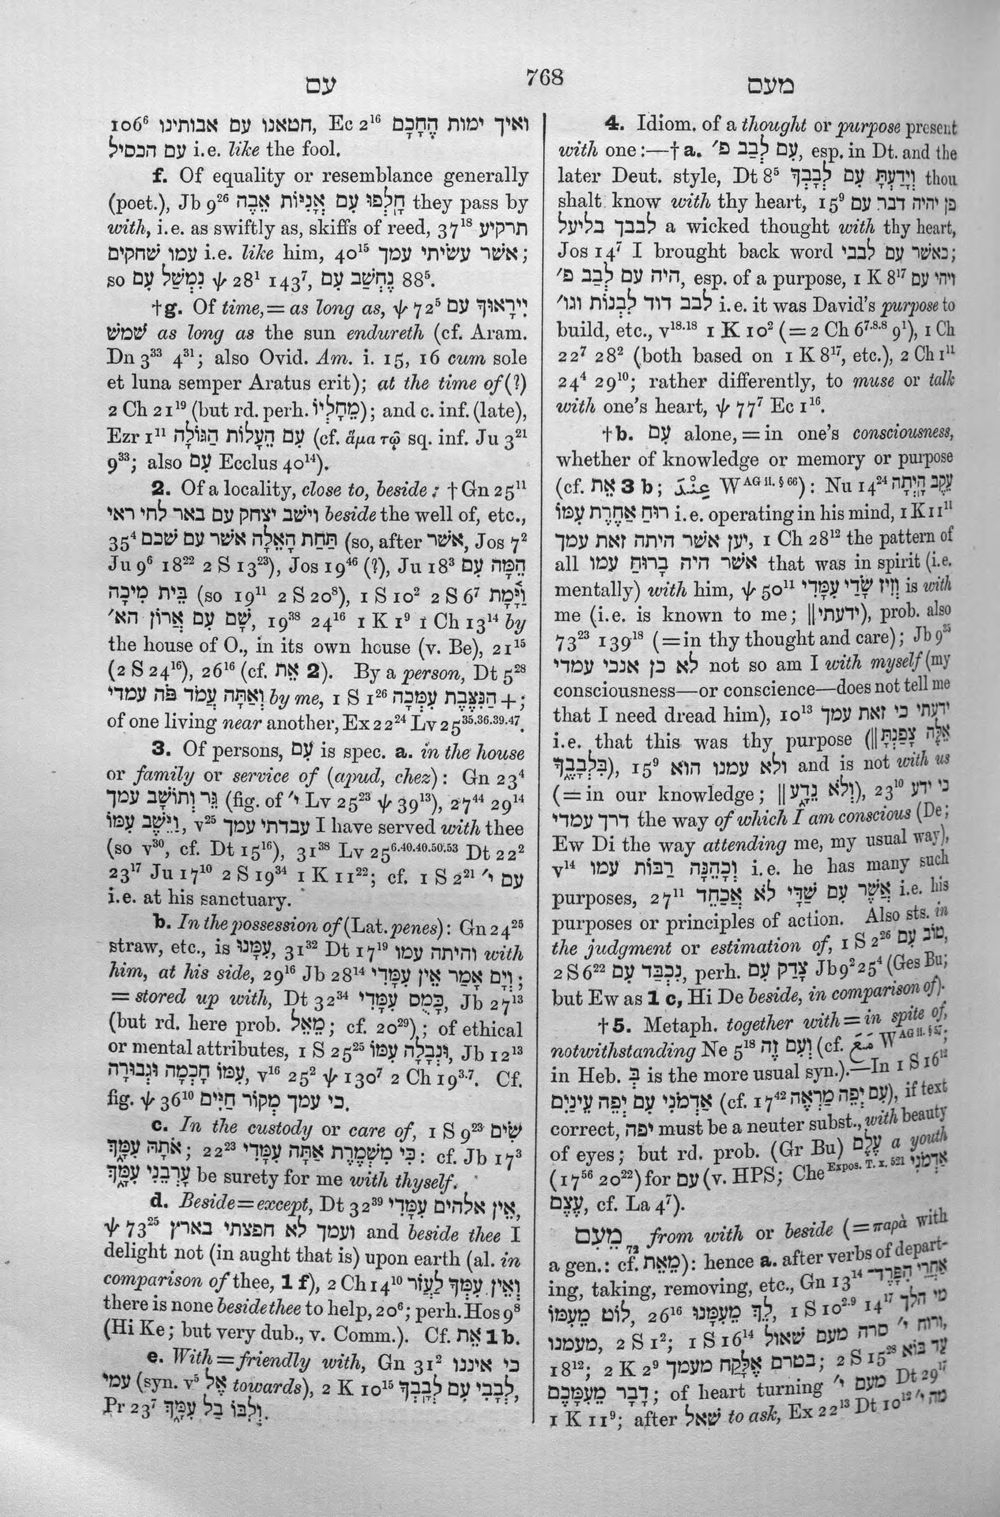 עם
768
מעם
106⁶ חטאנו עם אבותינו, Ec 2¹⁶ ואיך ימות הֶחָכָם
עם הכסיל i.e. like the fool.
f. Of equality or resemblance generally
(poet.), Jb 9²⁶ חָלְפוּ עִם אֳנִיּוֹת אֵבֶה they pass by
with, i.e. as swiftly as, skiffs of reed, 37¹⁸ תרקיע
עמו שחקים i.e. like him, 40¹⁵ אשר עשׂיתי עמך;
so נִמְשַׁל עִם ψ 28¹ 143⁷, נֶחְשַׁב עִם 88⁵.
†g. Of time, = as long as, ψ 72⁵ יִירָאוּךָ עם
שמשׁ as long as the sun endureth (cf. Aram.
Dn 3³³ 4³¹; also Ovid. Am. i. 15, 16 cum sole
et luna semper Aratus erit); at the time of(?)
2 Ch 21¹⁹ (but rd. perh. מַחֳלָיו); and c. inf. (late),
Ezr 1¹¹ עִם הֵעָלוֹת הַגּוֹלָה (cf. ἅμα τῷ sq. inf. Ju 3²¹
9³³; also עִם Ecclus 40¹⁴).
2. Of a locality, close to, beside: †Gn 25¹¹
וישב יצחק עם באר לחי ראי beside the well of, etc.,
35⁴ תַּחַת הָאֵלָה אשר עם שכם (so, after אשר, Jos 7²
Ju 9⁶ 18²² 2 S 13²³), Jos 19⁴⁶ (?), Ju 18³ הֵמָּה עִם
בֵּית מִיכָה (so 19¹¹ 2 S 20⁸), 1 S 10² 2 S 6⁷ וַיָּמָת
שָׁם עִם אֲרוֹן הא׳, 19³⁸ 24¹⁶ 1 K 1⁹ 1 Ch 13¹⁴ by
the house of O., in its own house (v. Be), 21¹⁵
(2 S 24¹⁶), 26¹⁶ (cf. אֵת 2). By a person, Dt 5²⁸
וְאַתָּה עֲמֹד פֹּה עמדי by me, 1 S 1²⁶ הַנִּצֶּבֶת עִמְּכָה +;
of one living near another, Ex 22²⁴ Lv 25³⁵·³⁶·³⁹·⁴⁷.
3. Of persons, עִם is spec. a. in the house
or family or service of (apud, chez): Gn 23⁴
גֵּר וְתוֹשָׁב עמך (fig. of י׳ Lv 25²³ ψ 39¹³), 27⁴⁴ 29¹⁴
וַיֵּשֶׁב עִמּוֹ, v²⁵ עבדתי עמך I have served with thee
(so v³⁰, cf. Dt 15¹⁶), 31³⁸ Lv 25⁶·⁴⁰·⁴⁰·⁵⁰·⁵³ Dt 22²
23¹⁷ Ju 17¹⁰ 2 S 19³⁴ 1 K 11²²; cf. 1 S 2²¹ עם י׳
i.e. at his sanctuary.
b. In the possession of (Lat. penes): Gn 24²⁵
straw, etc., is עִמָּנוּ, 31³² Dt 17¹⁹ והיתה עמו with
him, at his side, 29¹⁶ Jb 28¹⁴ וְיָם אָמַר אֵין עִמָּדִי;
= stored up with, Dt 32³⁴ כָּמֻס עִמָּדִי, Jb 27¹³
(but rd. here prob. מֵאֵל; cf. 20²⁹); of ethical
or mental attributes, 1 S 25²⁵ וּנְבָלָה עִמּוֹ, Jb 12¹³
עִמּוֹ חָכְמָה וּגְבוּרָה, v¹⁶ 25² ψ 130⁷ 2 Ch 19³·⁷. Cf.
fig. ψ 36¹⁰ כי עמך מְקוֹר חַיִּים.
c. In the custody or care of, 1 S 9²³ שִׂים
אֹתָהּ עִמָּךְ; 22²³ כִּי מִשְׁמֶרֶת אַתָּה עִמָּדִי: cf. Jb 17³
עָרְבֵנִי עִמָּךְ be surety for me with thyself.
d. Beside = except, Dt 32³⁹ אֵין אלהים עִמָּדִי,
ψ 73²⁵ ועמך לא חפצתי בארץ and beside thee I
delight not (in aught that is) upon earth (al. in
comparison of thee, 1 f), 2 Ch 14¹⁰ אֵין עִמְּךָ לַעְזֹר
there is none beside thee to help, 20⁶; perh. Hos 9⁸
(Hi Ke; but very dub., v. Comm.). Cf. אֵת 1 b.
e. With = friendly with, Gn 31² כי איננו
עמי (syn. v⁵ אֶל towards), 2 K 10¹⁵ לְבָבִי עִם לְבָבְךָ,
Pr 23⁷ וְלִבּוֹ בַל עִמָּךְ.
4. Idiom. of a thought or purpose present
with one:—†a. עִם לְבַב פ׳, esp. in Dt. and the
later Deut. style, Dt 8⁵ וְיָדַעְתָּ עִם לְבָבֶךָ thou
shalt know with thy heart, 15⁹ פן יהיה דבר עם
לבבך בליעל a wicked thought with thy heart,
Jos 14⁷ I brought back word כאשר עם לבבי;
היה עם לְבַב פ׳, esp. of a purpose, 1 K 8¹⁷ ויהי עם
לבב דוד לִבְנוֹת וגו׳ i.e. it was David's purpose to
build, etc., v¹⁸·¹⁸ 1 K 10² (= 2 Ch 6⁷·⁸·⁸ 9¹), 1 Ch
22⁷ 28² (both based on 1 K 8¹⁷, etc.), 2 Ch 1¹¹
24⁴ 29¹⁰; rather differently, to muse or talk
with one's heart, ψ 77⁷ Ec 1¹⁶.
†b. עִם alone, = in one's consciousness,
whether of knowledge or memory or purpose
(cf. אֵת 3 b; عِنْدَ W AG II. § 66): Nu 14²⁴ עֵקֶב הָיְתָה
רוּחַ אַחֶרֶת עִמּוֹ i.e. operating in his mind, 1 K 11¹¹
יען אשר היתה זאת עמך, 1 Ch 28¹² the pattern of
all אשר היה בָרוּחַ עמו that was in spirit (i.e.
mentally) with him, ψ 50¹¹ וְזִיז שָׂדַי עִמָּדִי is with
me (i.e. is known to me; ||ידעתי), prob. also
73²³ 139¹⁸ (= in thy thought and care); Jb 9³⁵
לא כן אנכי עמדי not so am I with myself (my
consciousness—or conscience—does not tell me
that I need dread him), 10¹³ ידעתי כי זאת עמך
i.e. that this was thy purpose (||אֵלֶּה צָפַנְתָּ
בִּלְבָבֶךָ), 15⁹ ולא עמנו הוא and is not with us
(= in our knowledge; ||וְלֹא נֵדָע), 23¹⁰ כי ידע
דרך עמדי the way of which I am conscious (De;
Ew Di the way attending me, my usual way),
v¹⁴ וְכָהֵנָּה רַבּוֹת עמו i.e. he has many such
purposes, 27¹¹ אֲשֶׁר עִם שַׁדַּי לֹא אֲכַחֵד i.e. his
purposes or principles of action. Also sts. in
the judgment or estimation of, 1 S 2²⁶ טוֹב עִם,
2 S 6²² נִכְבַּד עִם, perh. צָדַק עִם Jb 9² 25⁴ (Ges Bu;
but Ew as 1 c, Hi De beside, in comparison of).
†5. Metaph. together with = in spite of,
notwithstanding Ne 5¹⁸ וְעִם זֶה (cf. مَعَ W AG II. § 57;
in Heb. בְּ is the more usual syn.).—In 1 S 16¹²
אַדְמֹנִי עִם יְפֵה עֵינַיִם (cf. 17⁴² עִם יְפֵה מַרְאֶה), if text
correct, יפה must be a neuter subst., with beauty
of eyes; but rd. prob. (Gr Bu) עֶלֶם a youth
(17⁵⁶ 20²²) for עם (v. HPS; Che Expos. T. x. 521 אַדְמֹנִי
עֶצֶם, cf. La 4⁷).
מֵעִם ₇₂ from with or beside (= παρὰ with
a gen.: cf. מֵאֵת): hence a. after verbs of depart-
ing, taking, removing, etc., Gn 13¹⁴ אחרי הִפָּרֶד־
לוֹט מֵעִמּוֹ, 26¹⁶ לֵךְ מֵעִמָּנוּ, 1 S 10²·⁹ 14¹⁷ מי הלך
מעמנו, 2 S 1²; 1 S 16¹⁴ ורוח י׳ סרה מעם שאול,
18¹²; 2 K 2⁹ בטרם אֶלָּקַח מעמך; 2 S 15²⁸ עַד בּוֹא
דָבָר מֵעִמָּכֶם; of heart turning מעם י׳ Dt 29¹⁷
1 K 11⁹; after שאל to ask, Ex 22¹³ Dt 10¹² מה י׳